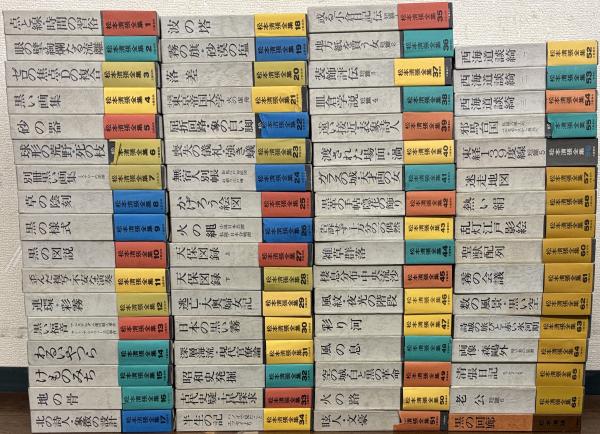 点と線 時間の習俗 松本清張全集 1
眼の壁 絢爛たる流離 松本清張全集 2
ゼロの焦点 Dの複合 松本清張全集 3
黒い画集 松本清張全集 4
砂の器 松本清張全集 5
球形の荒野 死の枝 松本清張全集 6
別冊黒い画集 松本清張全集 7
草の陰刻 松本清張全集 8
黒の様式 松本清張全集 9
黒の図説 松本清張全集 10
歪んだ複写 不安な演奏 松本清張全集 11
連環・彩霧 松本清張全集 12
黒い福音 松本清張全集 13
わるいやつら 松本清張全集 14
けものみち 松本清張全集 15
地の骨 松本清張全集 16
北の詩人・象徴の設計 松本清張全集 17
波の塔 松本清張全集 18
霧の旗 砂漠の塩 松本清張全集 19
落差 松本清張全集 20
小説東京帝国大学 松本清張全集 21
屈折回路 象の白い脚 松本清張全集 22
喪失の儀礼 強き蟻 松本清張全集 23
無宿人別帳 松本清張全集 24
かげろう絵図 松本清張全集 25
火の縄 松本清張全集 26
天保図録 上 松本清張全集 27
天保図録 下 松本清張全集 28
逃亡 大奥婦女記 松本清張全集 29
日本の黒い霧 松本清張全集 30
深層海流 現代官僚論 松本清張全集 31
昭和史発掘 松本清張全集 32
古代史疑 古代探求 松本清張全集 33
半生の記 松本清張全集 34
或る「小倉日記」伝 松本清張全集 35
地方紙を買う女 松本清張全集 36
装飾評伝 松本清張全集 37
皿倉学説 松本清張全集 38
遠い接近 表象詩人 松本清張全集 39
渡された場面 渦 松本清張全集 40
ガラスの城 天才画の女 松本清張全集 41
松本清張全集 42
告訴せず 十万分の一の偶然 松本清張全集 43
雑草群落 松本清張全集 44
棲息分布 中央流沙 松本清張全集 45
風紋 夜光の階段 松本清張全集 46
彩り河 松本清張全集 47
風の息 松本清張全集 48
空の城 白と黒の革命 松本清張全集 49
火の路 松本清張全集 50
眩人・文豪 松本清張全集 51
西海道談綺 一 松本清張全集 52
西海道談綺 二 松本清張全集 53
西海道談綺 三 松本清張全集 54
邪馬台国 松本清張全集 55
東経139度線 松本清張全集
迷走地図 松本清張全集 57
熱い絹 松本清張全集 58
乱灯 江戸影絵 松本清張全集 59
聖獣配列 松本清張全集 60
霧の会議 松本清張全集 61
数の風景・黒い空 松本清張全集 62
松本清張全集 63
両像・森鷗外 松本清張全集 64
清張日記 松本清張全集 65
老公 松本清張全集 66
黒の回廊